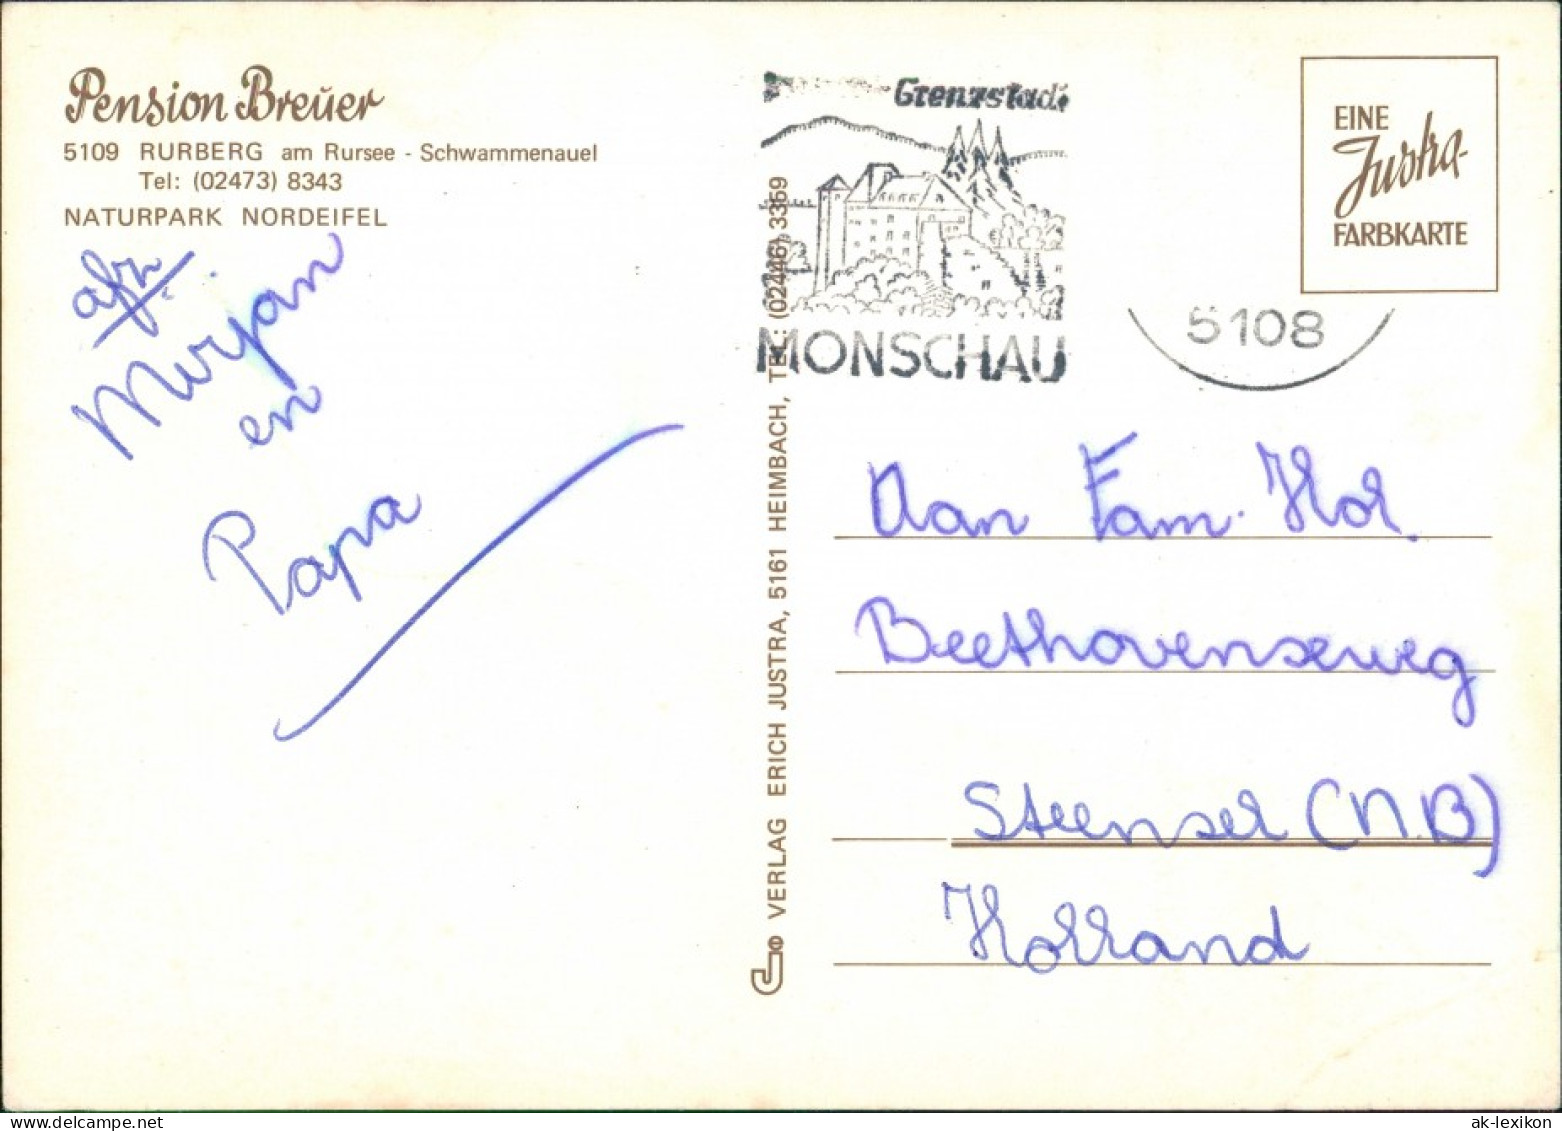 Pension Breuer
5109 RURBERG am Rursee - Schwammenauel
Tel: (02473) 8343
NATURPARK NORDEIFEL
afz.
Mirjan
en
Papa
VERLAG ERICH JUSTRA, 5161 HEIMBACH, TEL.: (02446) 3359
Grenzstadt
MONSCHAU
5108
EINE
Justra-
FARBKARTE
Aan Fam. Hol.
Beethovenseweg
Steensel (N.B)
Holland
ak-lexikon